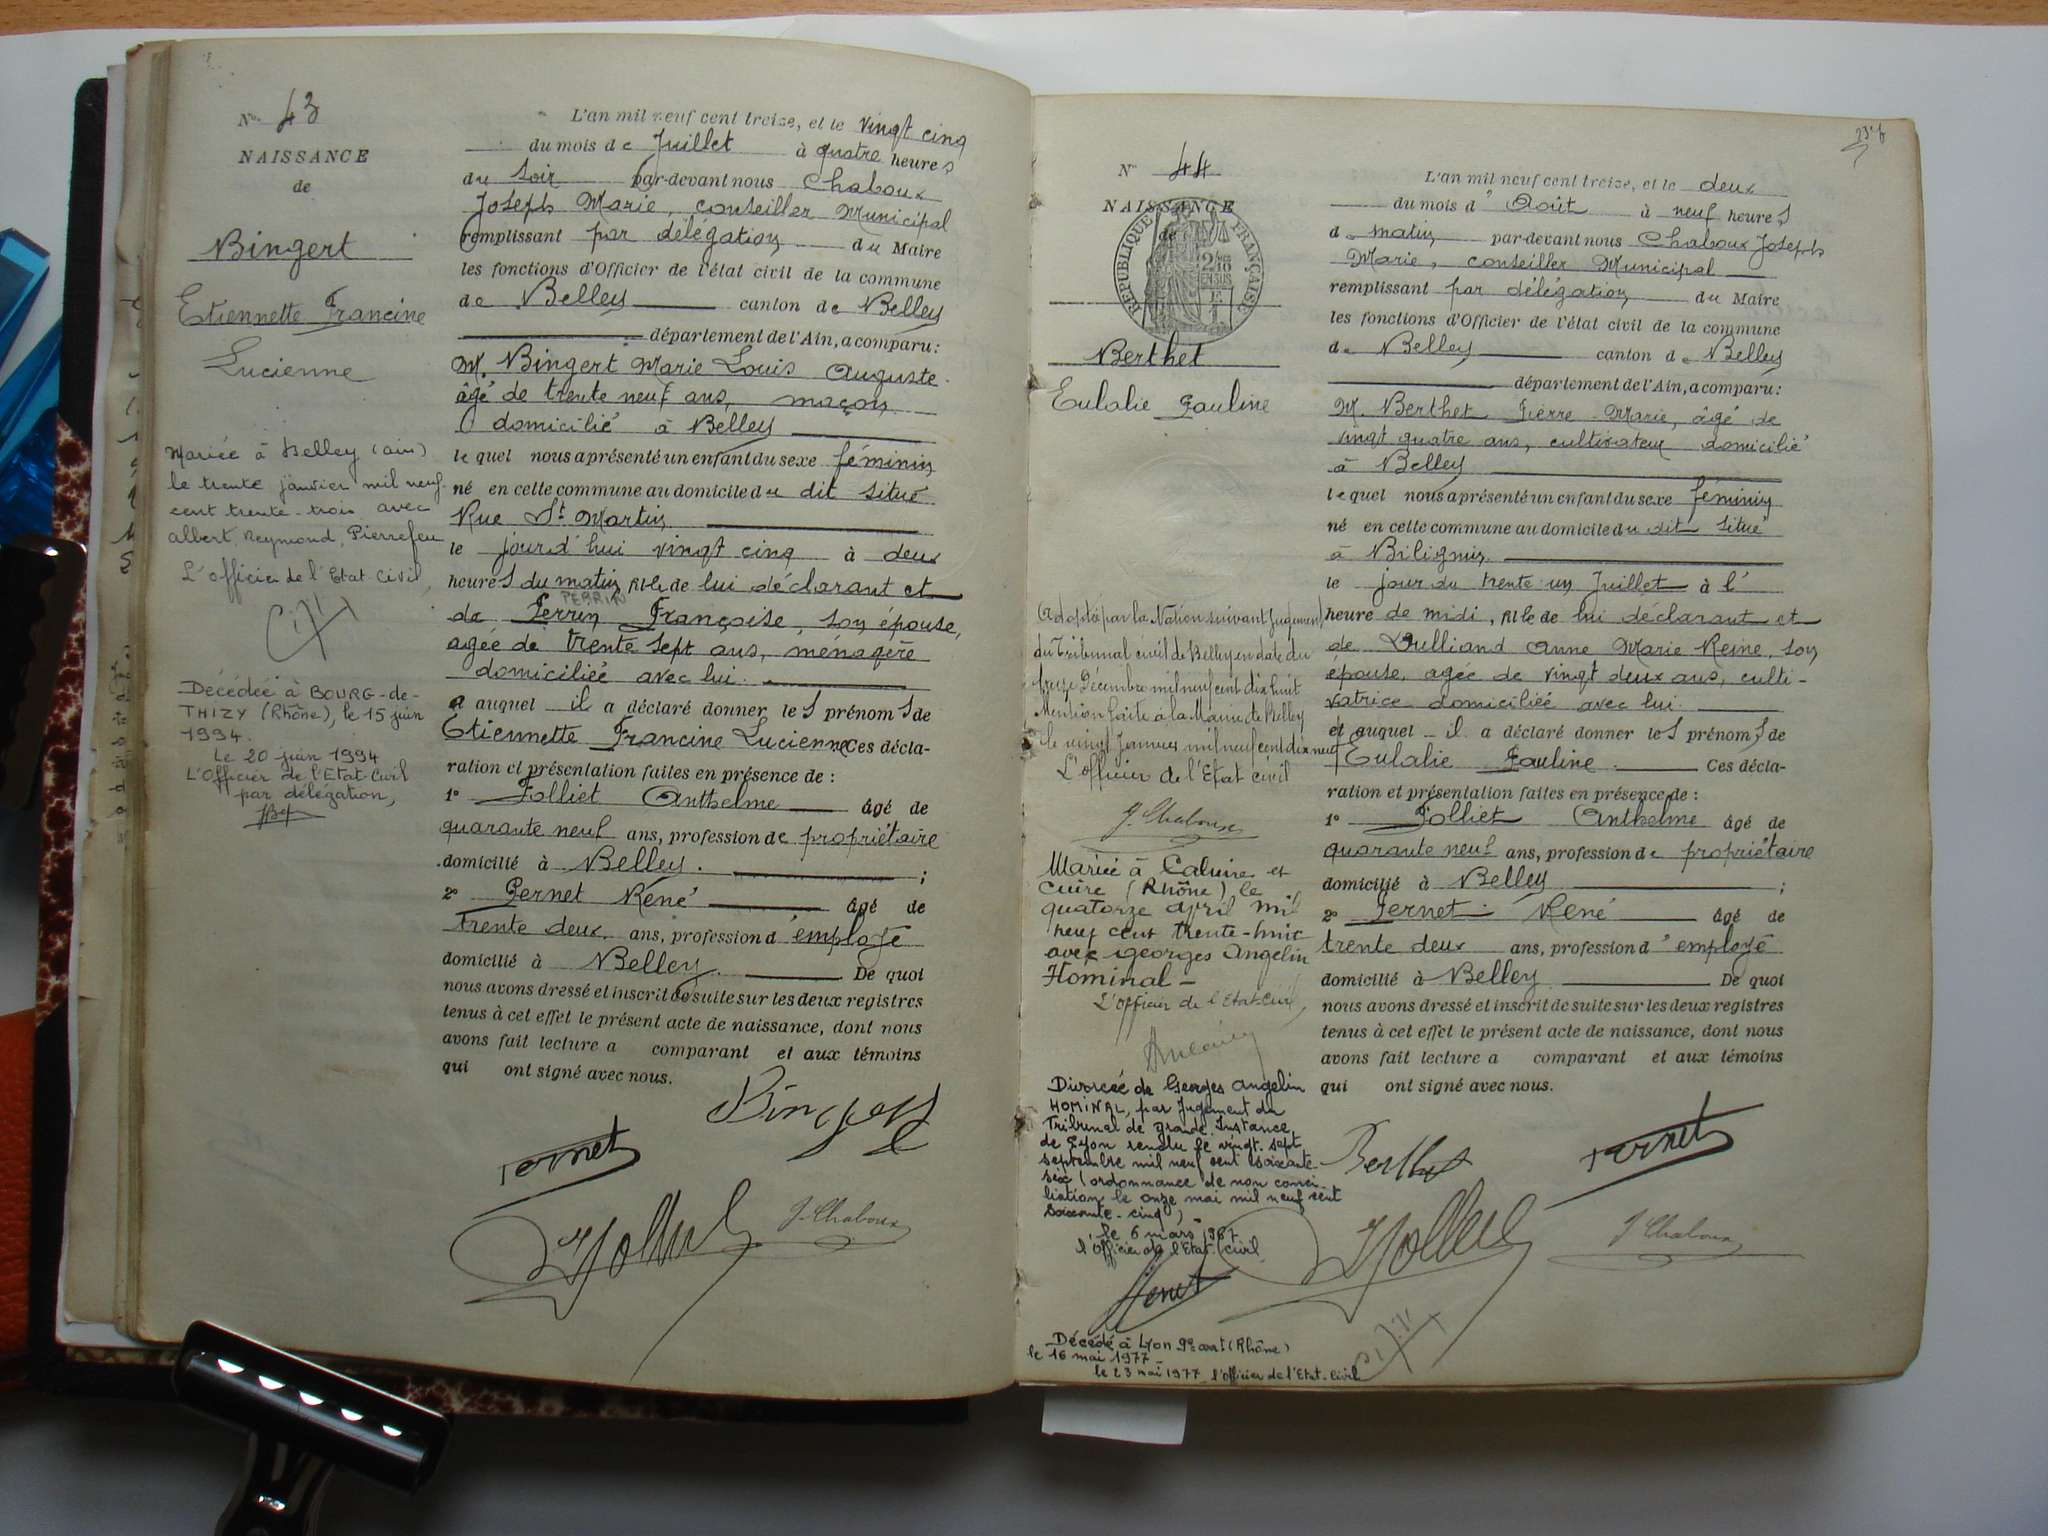 No 43
NAISSANCE
de
Bingert
Etiennette Francine
Lucienne
Mariée à Belley (ain)
le trente janvier mil neuf
cent trente-trois avec
albert, Reymond, Pierrefeu
L'officier de l'Etat Civil,
Décédée à BOURG-de-
THIZY (Rhône), le 15 juin
1994.
Le 20 juin 1994
L'Officier de l'Etat Civil
par délégation,
L'an mil neuf cent treize, et le vingt cinq
du mois de Juillet à quatre heures
du soir par-devant nous Chaboux
Joseph Marie, conseiller Municipal
remplissant par délégation du Maire
les fonctions d'Officier de l'état civil de la commune
de Belley canton de Belley
département de l'Ain, a comparu:
M. Bingert Marie Louis Auguste
âgé de trente neuf ans, maçon
domicilié à Belley
le quel nous a présenté un enfant du sexe féminin
né en cette commune au domicile du dit situé
Rue St Martin
le jourd'hui vingt cinq à deux
heures du matin, fille de lui déclarant et
PERRIN
de Perrin Françoise, son épouse,
agée de trente sept ans, ménagère
domiciliée avec lui.
a auquel il a déclaré donner les prénoms de
Etiennette Francine Lucienne Ces décla-
ration et présentation faites en présence de :
1o Folliet Anthelme âgé de
quarante neuf ans, profession de propriétaire
domicilié à Belley. ;
2o Pernet René âgé de
trente deux ans, profession d'employé
domicilié à Belley. De quoi
nous avons dressé et inscrit de suite sur les deux registres
tenus à cet effet le présent acte de naissance, dont nous
avons fait lecture a comparant et aux témoins
qui ont signé avec nous.
Bingert
Pernet
Folliet J. Chaboux
No 44
NAISSANCE
de
RÉPUBLIQUE FRANÇAISE
Berthet
Eulalie Pauline
Adoptée par la Nation suivant Jugement
du Tribunal civil de Belley en date du
treize Décembre mil neuf cent dix huit
Mention faite à la Mairie de Belley
le vingt Janvier mil neuf cent dix neuf
L'officier de l'Etat civil
J. Chaboux
Mariée à Caluire et
Cuire (Rhône) le
quatorze april mil
neuf cent trente-huit
avec Georges Angelin
Hominal -
L'officier de l'Etat Civil,
Divorcée de Georges Angelin
HOMINAL, par Jugement du
Tribunal de grande Instance
de Lyon rendu le vingt-sept
septembre mil neuf cent soixante
six (ordonnance de non conci-
liation le onze mai mil neuf cent
soixante-cinq)
le 6 mars 1967
l'Officier de l'Etat-Civil
Décédé à Lyon 9e arrt (Rhône)
le 16 mai 1977
le 23 mai 1977 l'officier de l'Etat-Civil
L'an mil neuf cent treize, et le deux
du mois d'Août à neuf heures
d matin par-devant nous Chaboux Joseph
Marie, conseiller Municipal
remplissant par délégation du Maire
les fonctions d'Officier de l'état civil de la commune
de Belley canton de Belley
département de l'Ain, a comparu:
M. Berthet Pierre Marie, âgé de
vingt quatre ans, cultivateur domicilié
à Belley
le quel nous a présenté un enfant du sexe féminin
né en cette commune au domicile du dit situé
à Bilignin.
le jour du trente un Juillet à l'
heure de midi, fille de lui déclarant et
de Vulliand Anne Marie Reine, son
épouse, agée de vingt deux ans, culti-
vatrice domiciliée avec lui.
et auquel il a déclaré donner les prénoms de
Eulalie Pauline. Ces décla-
ration et présentation faites en présence de :
1o Folliet Anthelme âgé de
quarante neuf ans, profession de propriétaire
domicilié à Belley ;
2o Pernet René âgé de
trente deux ans, profession d'employé
domicilié à Belley De quoi
nous avons dressé et inscrit de suite sur les deux registres
tenus à cet effet le présent acte de naissance, dont nous
avons fait lecture a comparant et aux témoins
qui ont signé avec nous.
Berthet Pernet
Folliet J. Chaboux